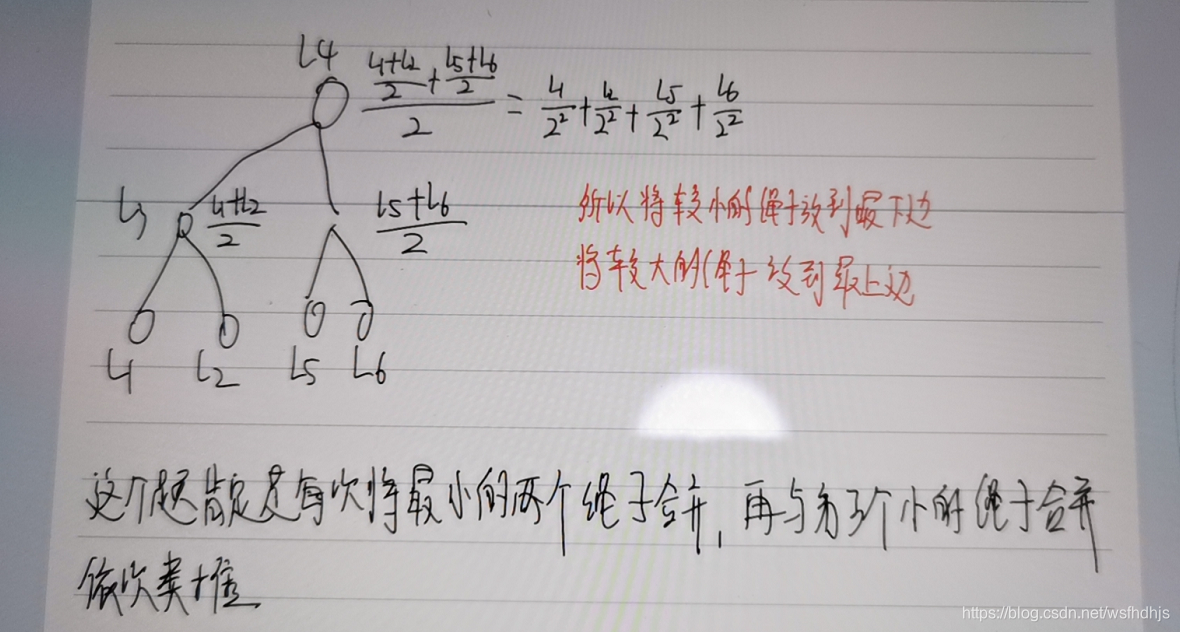 L4
(L1+L2)/2 + (L5+L6)/2
/2 = L1/2² + L2/2² + L5/2² + L6/2²
L3 (L1+L2)/2 (L5+L6)/2
所以将较小的绳子放到最下边
将较大的绳子放到最上边
L1 L2 L5 L6
这个题肯定是每次将最小的两个绳子合并,再与第3个小的绳子合并
依次类推
https://blog.csdn.net/wsfhdhjs